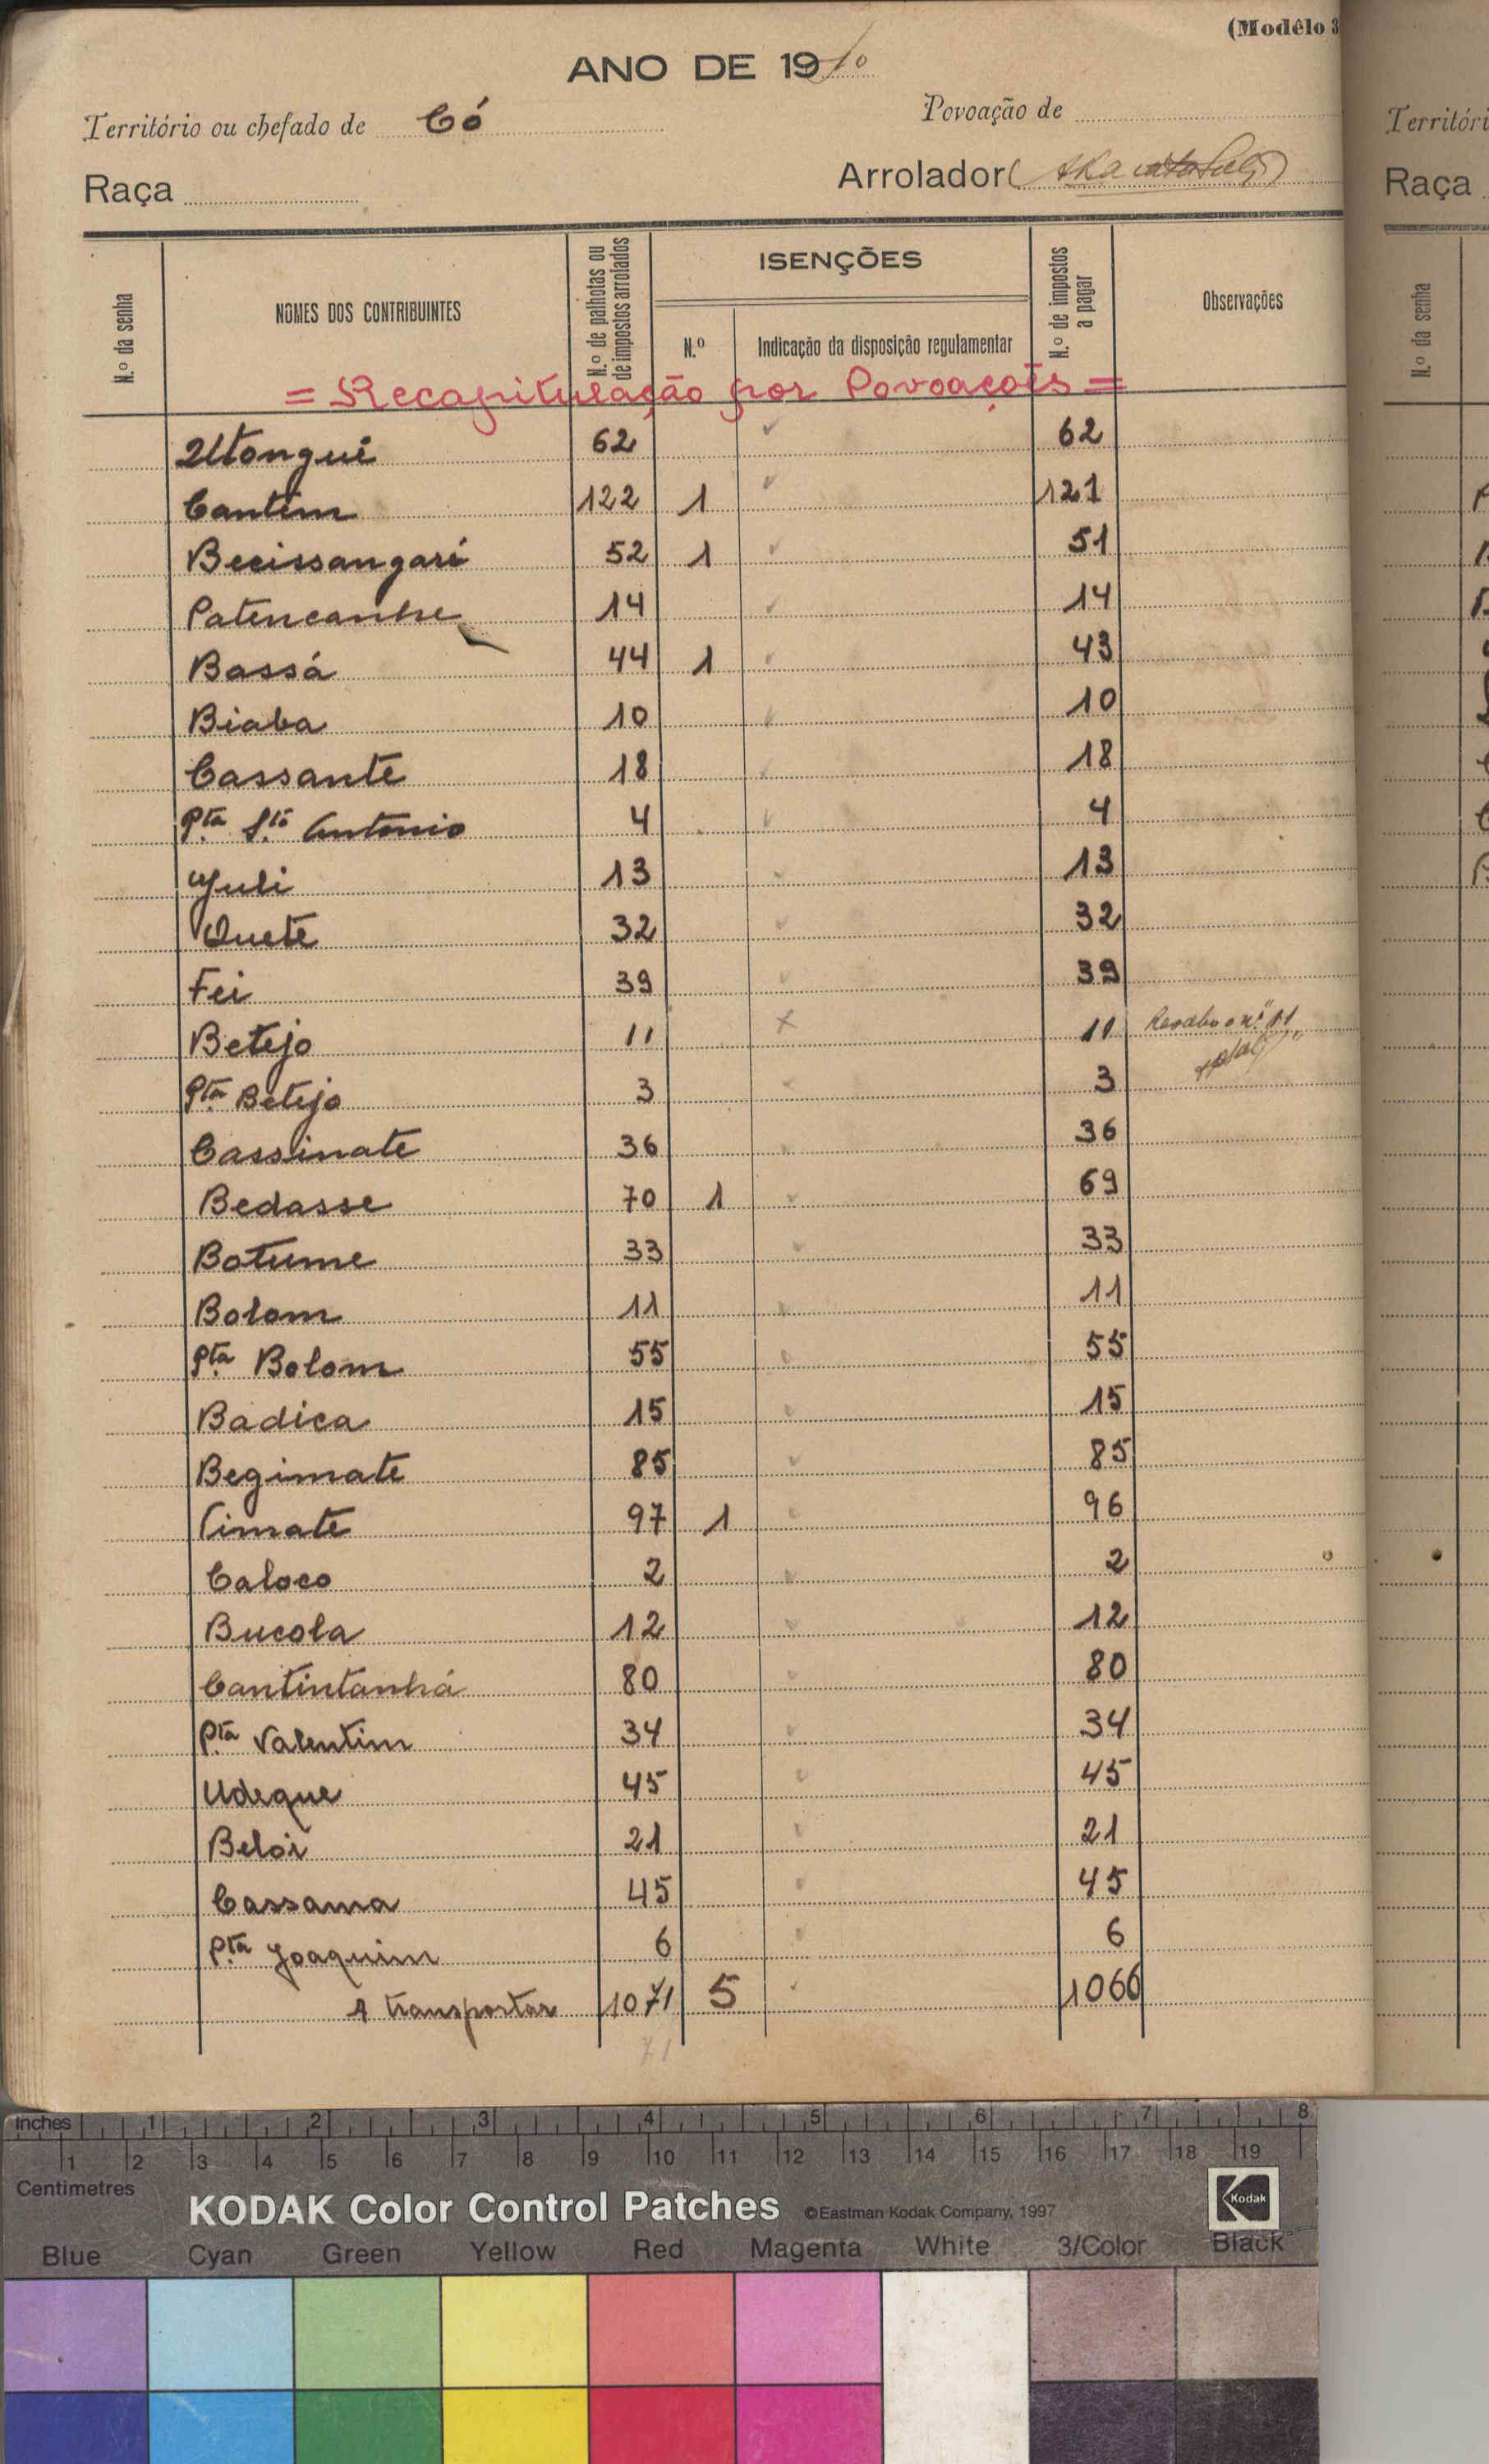 (Modêlo 3
ANO DE 19
Território ou chefado de Có
Povoação de
Raça
Arrolador
N.º da senha
NOMES DOS CONTRIBUINTES
N.º de palhotas ou de impostos arrolados
ISENÇÕES
N.º
Indicação da disposição regulamentar
N.º de impostos a pagar
Observações
= Recapitulação por Povoações =
62 62
Cantim 122 1 121
Becissangaré 52 1 51
Patencanhe 14 14
Bassá 44 1 43
Biaba 10 10
Cassante 18 18
Pta Sto Antonio 4 4
13 13
Quete 32 32
Fei 39 39
Betejo 11 11
Pta Betejo 3 3
Cassinate 36 36
Bedasse 70 1 69
Botume 33 33
Bolom 11 11
Pta Bolom 55 55
Badica 15 15
Begimate 85 85
Timate 97 1 96
Caloco 2 2
Bucola 12 12
Cantintanhá 80 80
Pta Valentim 34 34
Udeque 45 45
Belor 21 21
Cassama 45 45
Pta Joaquim 6 6
A transportar 1071 5 1066
71
Territóri
Raça
N.º da senha
inches 1 2 3 4 5 6 7 8
1 2 3 4 5 6 7 8 9 10 11 12 13 14 15 16 17 18 19
Centimetres
KODAK Color Control Patches ©Eastman Kodak Company, 1997 Kodak
Blue Cyan Green Yellow Red Magenta White 3/Color Black